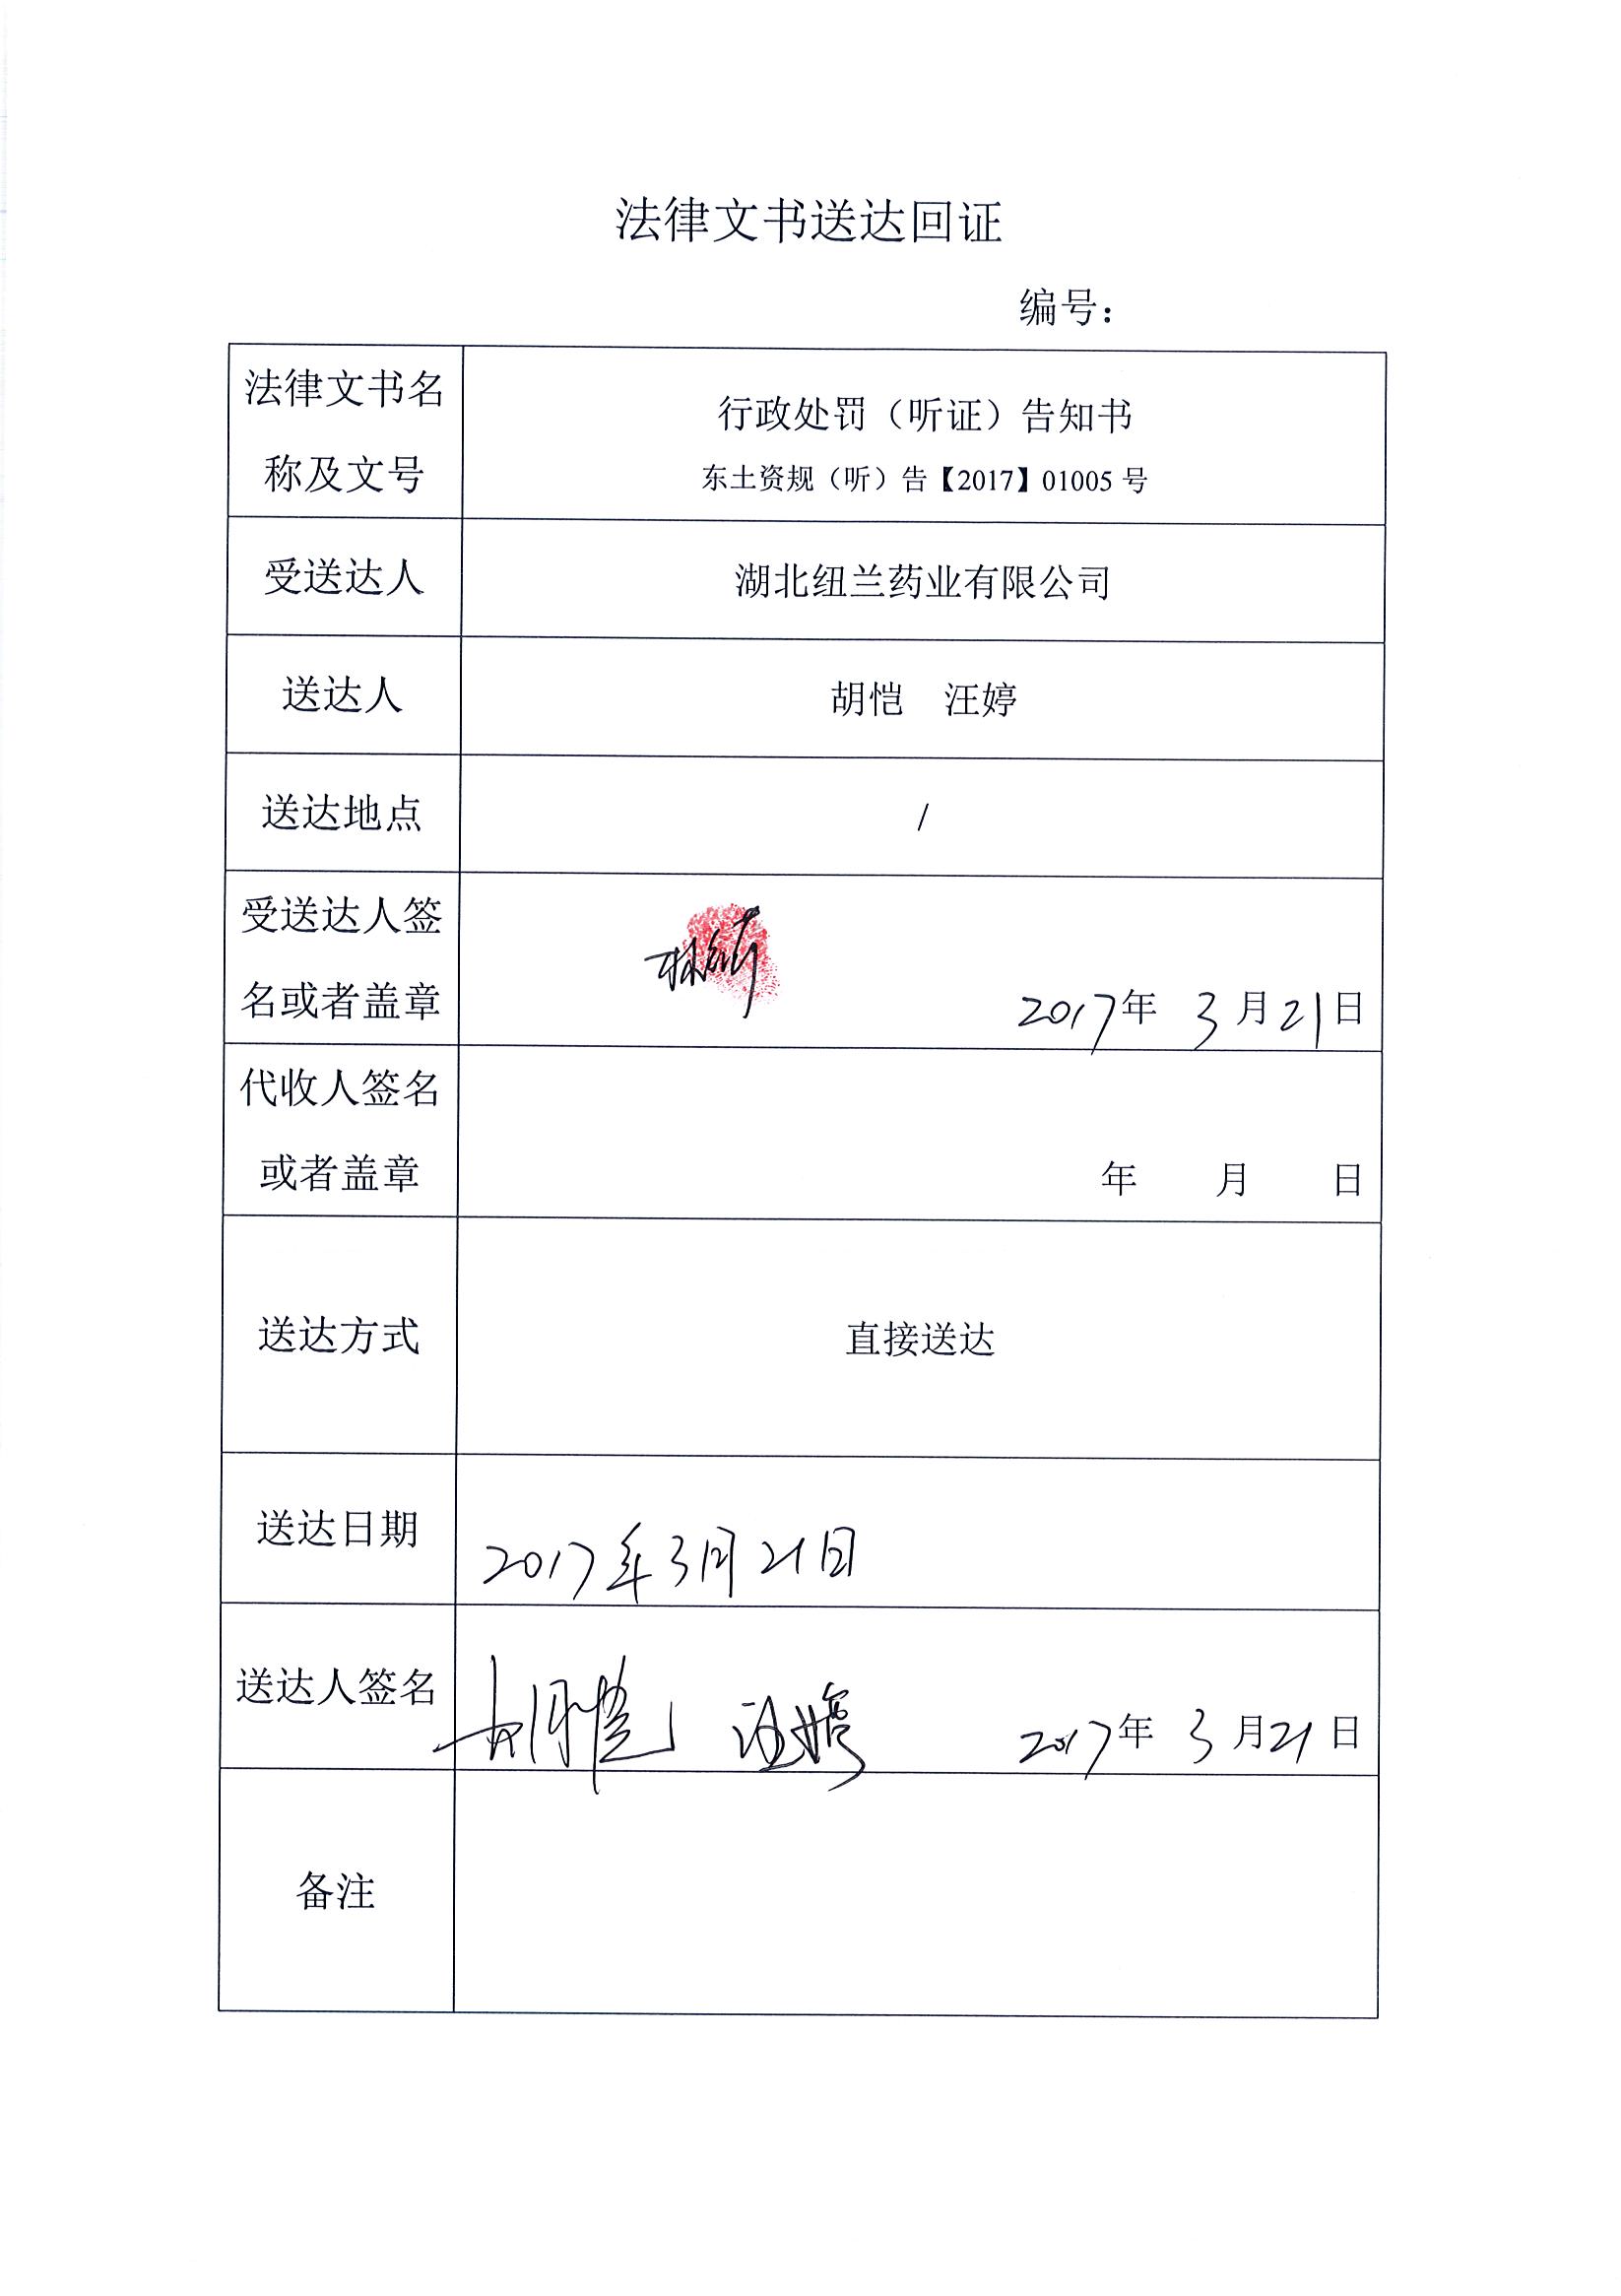 法律文书送达回证
编号：
法律文书名
称及文号
行政处罚（听证）告知书
东土资规（听）告【2017】01005 号
受送达人
湖北纽兰药业有限公司
送达人
胡恺 汪婷
送达地点
/
受送达人签
名或者盖章
2017年 3月21日
代收人签名
或者盖章
年 月 日
送达方式
直接送达
送达日期
2017年3月21日
送达人签名
胡恺 汪婷 2017年 3月21日
备注